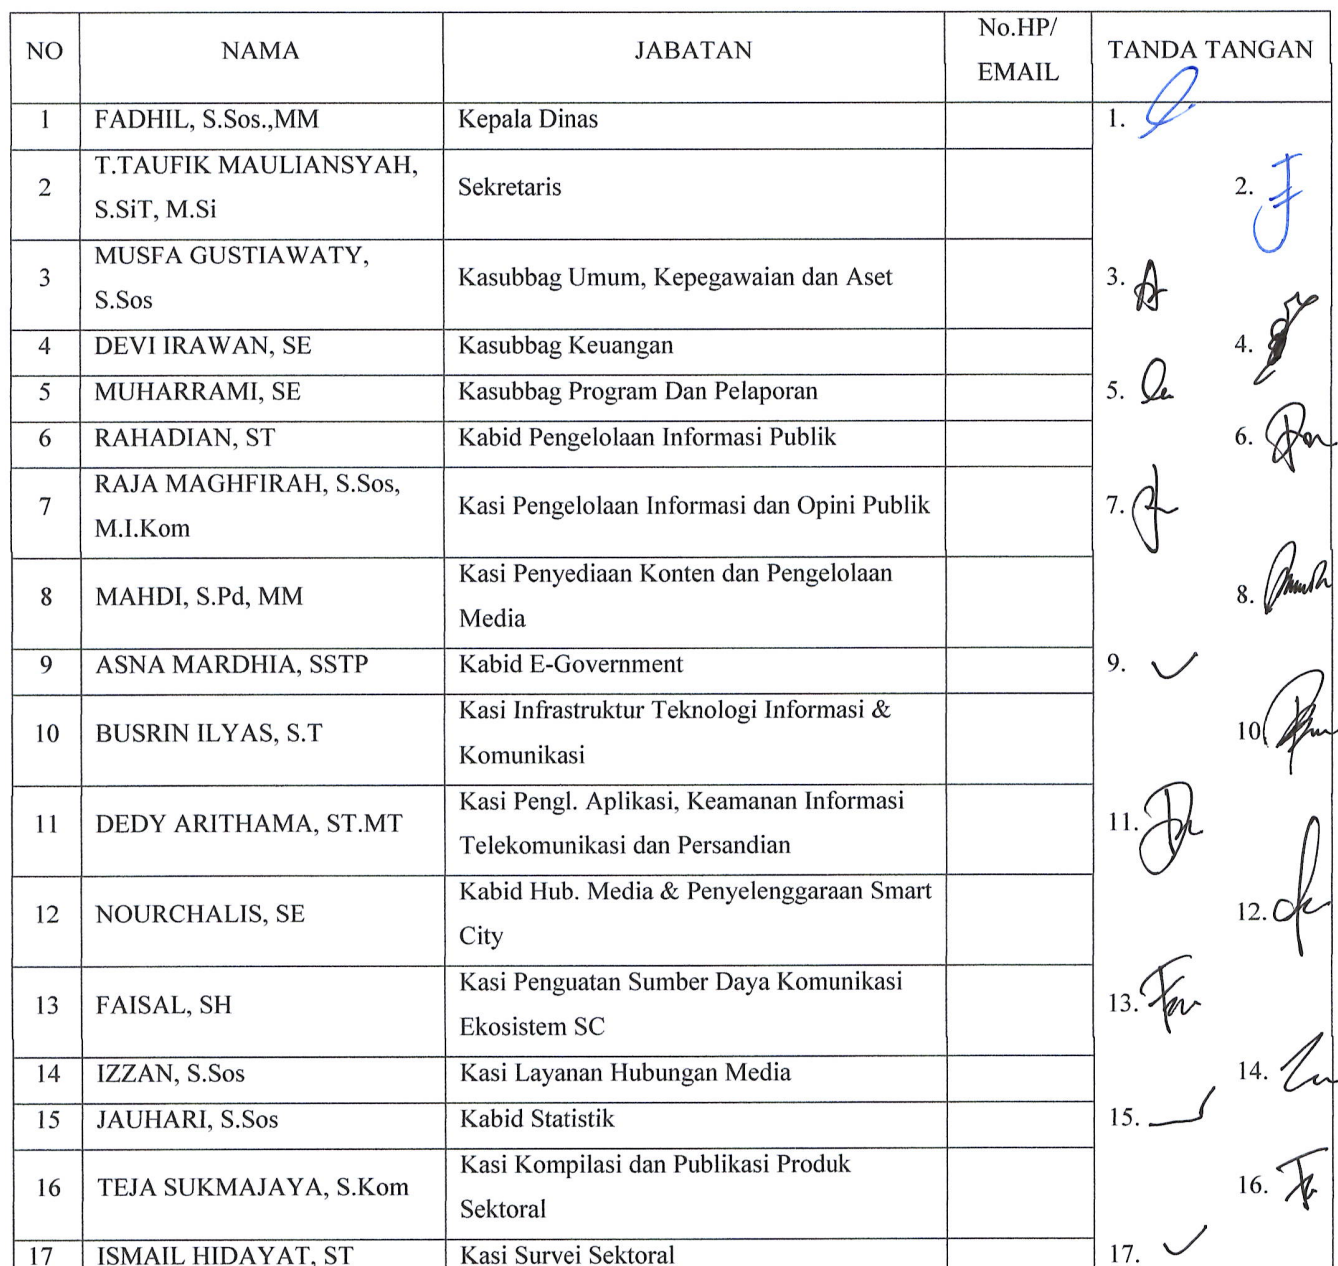 NO NAMA JABATAN No.HP/
EMAIL TANDA TANGAN
1 FADHIL, S.Sos.,MM Kepala Dinas 1.
2 T.TAUFIK MAULIANSYAH,
S.SiT, M.Si Sekretaris 2.
3 MUSFA GUSTIAWATY,
S.Sos Kasubbag Umum, Kepegawaian dan Aset 3.
4 DEVI IRAWAN, SE Kasubbag Keuangan 4.
5 MUHARRAMI, SE Kasubbag Program Dan Pelaporan 5.
6 RAHADIAN, ST Kabid Pengelolaan Informasi Publik 6.
7 RAJA MAGHFIRAH, S.Sos,
M.I.Kom Kasi Pengelolaan Informasi dan Opini Publik 7.
8 MAHDI, S.Pd, MM Kasi Penyediaan Konten dan Pengelolaan
Media 8.
9 ASNA MARDHIA, SSTP Kabid E-Government 9.
10 BUSRIN ILYAS, S.T Kasi Infrastruktur Teknologi Informasi &
Komunikasi 10
11 DEDY ARITHAMA, ST.MT Kasi Pengl. Aplikasi, Keamanan Informasi
Telekomunikasi dan Persandian 11.
12 NOURCHALIS, SE Kabid Hub. Media & Penyelenggaraan Smart
City 12.
13 FAISAL, SH Kasi Penguatan Sumber Daya Komunikasi
Ekosistem SC 13.
14 IZZAN, S.Sos Kasi Layanan Hubungan Media 14.
15 JAUHARI, S.Sos Kabid Statistik 15.
16 TEJA SUKMAJAYA, S.Kom Kasi Kompilasi dan Publikasi Produk
Sektoral 16.
17 ISMAIL HIDAYAT, ST Kasi Survei Sektoral 17.